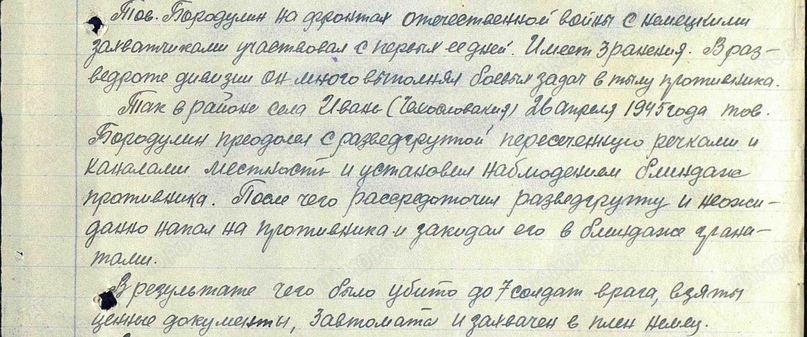 Тов. Бородулин на фронтах отечественной войны с немецкими
захватчиками участвовал с первых ее дней. Имеет 3 ранения. В раз-
ведроте дивизии он много выполнял боевых задач в тылу противника.
Так в районе села Иване (Чехословакия) 26 апреля 1945 года тов.
Бородулин преодолел с разведгруппой пересеченную речками и
каналами местность и установил наблюдением блиндаж
противника. После чего рассредоточил разведгруппу и неожи-
данно напал на противника и закидал его в блиндаже грана-
тами.
В результате чего было убито до 7 солдат врага, взяты
ценные документы, 3 автомата и захвачен в плен немец.